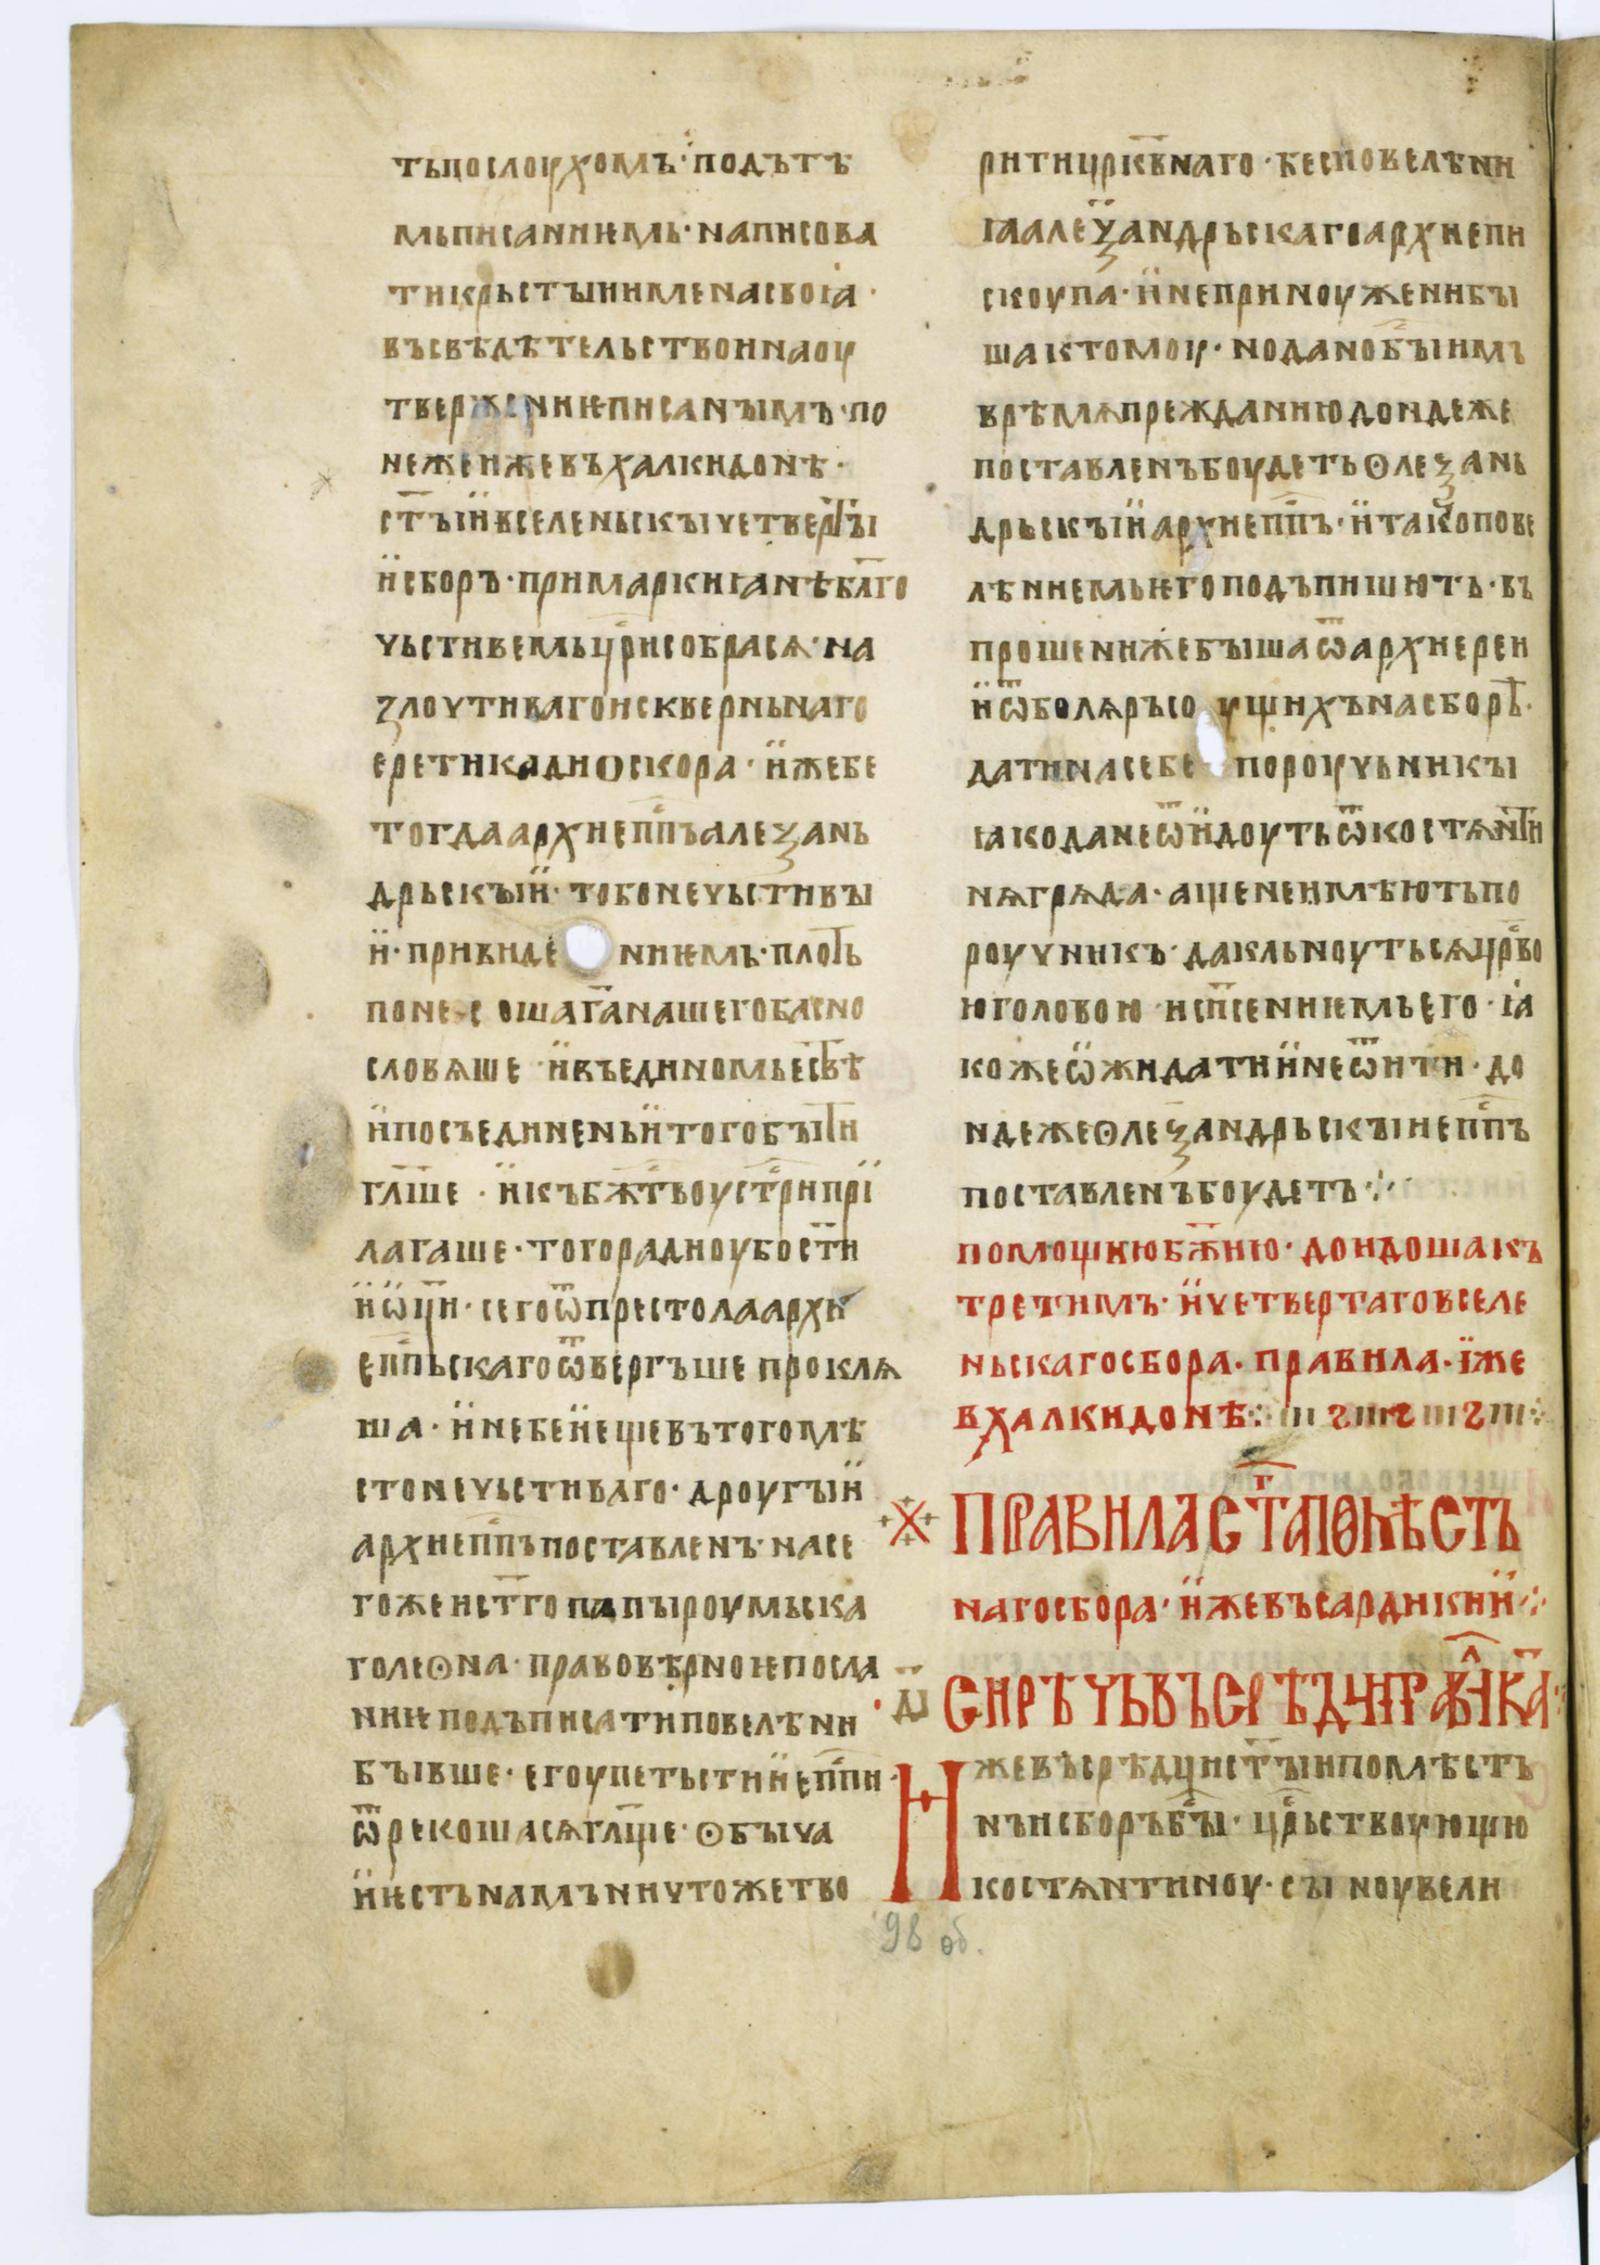 тьпослоухомъ·подътѣ
мьписаниѥмь·написова
тикрьстыиименасвоꙗ·
въсвѣдѣтельствоинаоу
твержениѥписанъımъ·по
нежеижевъхалкидонѣ·
ст҃ъıивселеньскъıчетвертъı
исборъ·примаркиꙗнѣбл҃го
чьстивемьцр҃исобрасѧ·на
ꙁлочтивагоискверньнаго
еретикадиоскора·ижебе
тогдаархиеп҃пъалеѯань
дрьскъıи·тобонечьстивъı
и·привидениѥмь·плоть
понесошаг҃анашегобасно
словѧше·ивъединомьест҃вѣ
ипосъединеньитогобъıти
гл҃ше·икъбж҃твоустр҃ипрї
лагаше·тогорадиоубости
иѡц҃и·сегоѿпрестолаархи
еп҃пьскагоѿвергъше·проклѧ
ша·инебеиещевътогомѣ
стонечьстиваго·дроугъıи
архиеп҃пъпоставленъ·насе
гожеист҃гопапъıроумьска
голеѳна·правовѣрноѥпосла
ниѥподъписатиповелѣни
бъıвше·егоупетьстииеп҃пи·
ѿрекошасѧгл҃ще·ѳбъıча
иѥстьнамъничтожетво
ритицр҃квнаго·бесповелѣни
ꙗалеѯандрьскагоархиепи
скоупа·инепринужениби
шактомоу·нодан̑объıимъ
врѣмѧпрежданиюдондеже
поставленъбоудетьѳлеѯань
дрьскъıиархиеп҃пъ·итакопове
лѣниемьѥгоподъпишють·въ
прошенижебъıшаѿархиереи
иѿболѧръсоущихънасборѣ·
датинасебепороучьникъı
ꙗкоданеѿидоутьѿкостѧнти
нѧгрѧда·ащенеимѣютьпо
роучникъ·дакльноутьсѧцр҃во
юголовою·исп҃сениѥмьего·ꙗ
кожеѡжидатиинеѿити·до
ндежеѳлеѯандрьскъıиеп҃пъ
поставленъбоудеть·
помощиюбж҃ию·доидошакъ
третимъ·ичетвертаговселе
ньскагосбора·правила·їже
вхалкидонѣ·
правиласт҃агопомѣсть
нагосбора·ижевъсардикии
д҃ı сирѣчьвъсрѣдци правı к҃а·
ижевъсрѣдцист҃ъıипомѣсть
нъисборъбы҃·цр҃ьствоующю
костѧнтиноу·съıноувели
98 об.